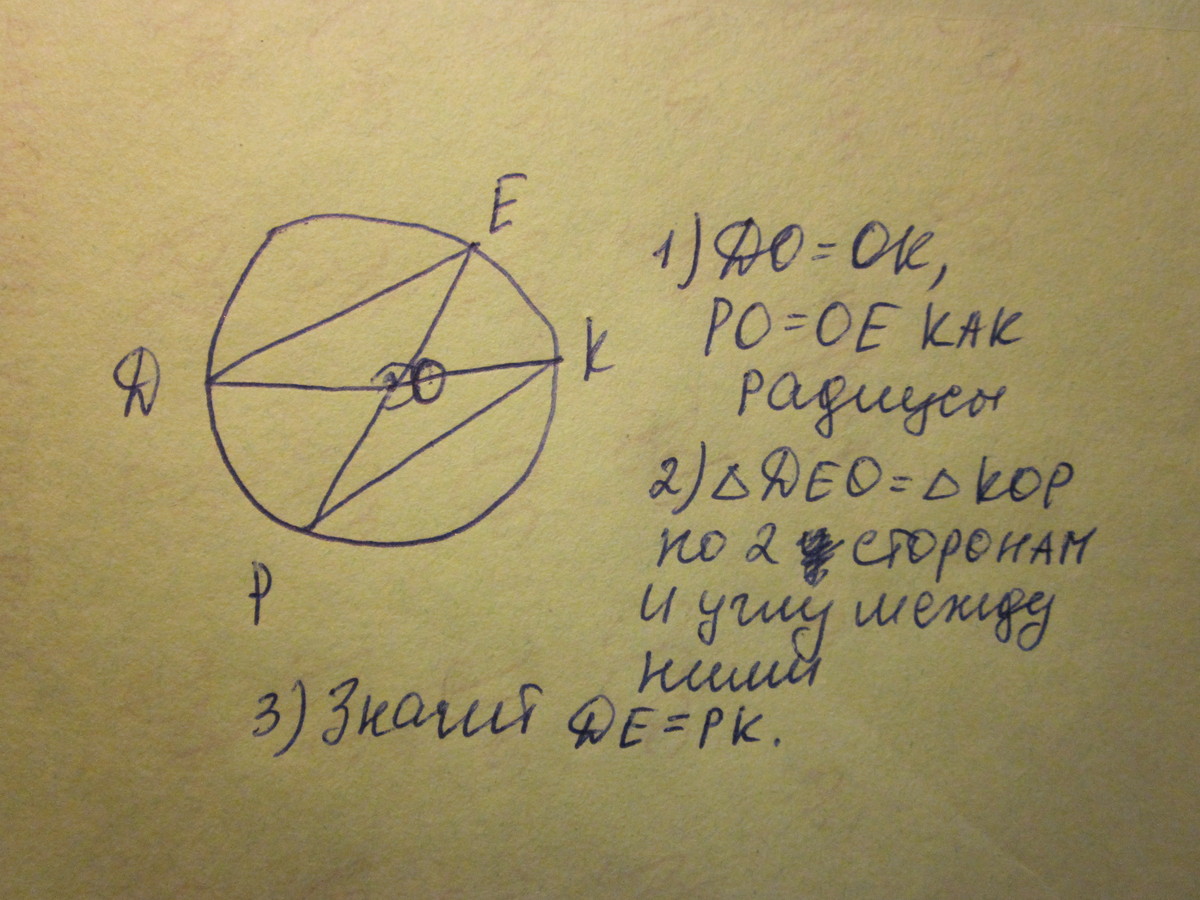 E
K
D
O
P
1) DO = OK,
PO = OE КАК
радиусы
2) △ DEO = △ KOP
ПО 2 СТОРОНАМ
И углу между
ними
3) Значит DE = PK.